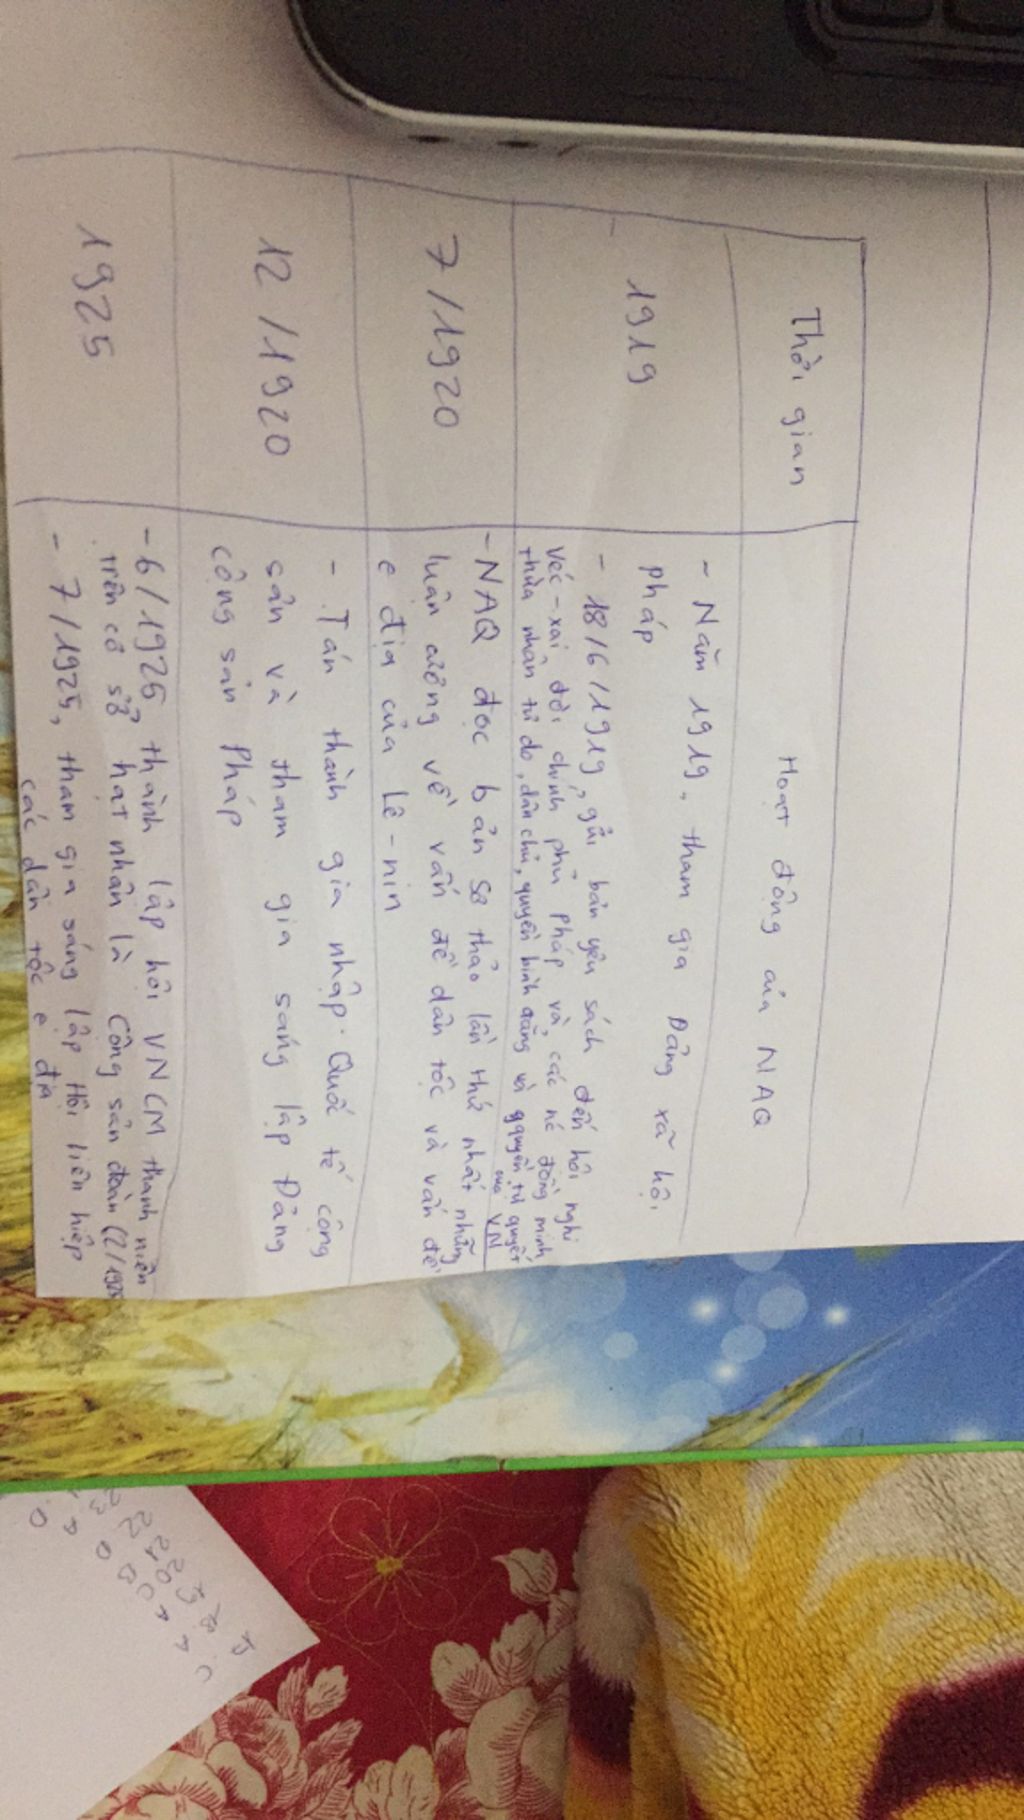 Thời gian
Hoạt động của NAQ
1919
- Năm 1919, tham gia Đảng xã hội
pháp
- 18/6/1919, gửi bản yêu sách đến hội nghi
Véc-xai, đòi chính phủ pháp và các nc đồng minh
thừa nhận tự do, dân chủ, quyền bình đẳng và quyền tự quyết
của VN
7/1920
- NAQ đọc bản sơ thảo lần thứ nhất những
luận cương về vấn đề dân tộc và vấn đề
e địa của Lê-nin
12/1920
- Tán thành gia nhập Quốc tế cộng
sản và tham gia sáng lập Đảng
cộng sản Pháp
1925
- 6/1925 thành lập hội VNCM thanh niên
trên cơ sở hạt nhân là Cộng sản đoàn (2/1925
- 7/1925, tham gia sáng lập Hội liên hiệp
các dân tộc e địa